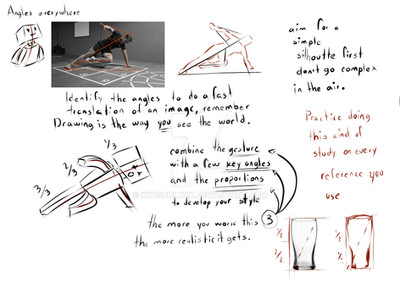 Angles everywhere
aim for a
simple
silhuttle first
don't go complex
in the air.
Identify the angles to do a fast
translation of an image, remember
Drawing is the way you see the world.
Practice doing
this kind of
study on every
reference you
use
1/3
2/3
3/3
combine the gesture
with a few key angles
and the proportions
to develop your style
3
the more you work this
the more realistic it gets.
1/2
2/2
1/2